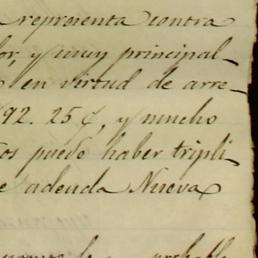 representa contra
or, y muy principal-
en virtud de arre-
92. 25 ¢, y mucho
os puede haber tripli-
e adeuda Nueva